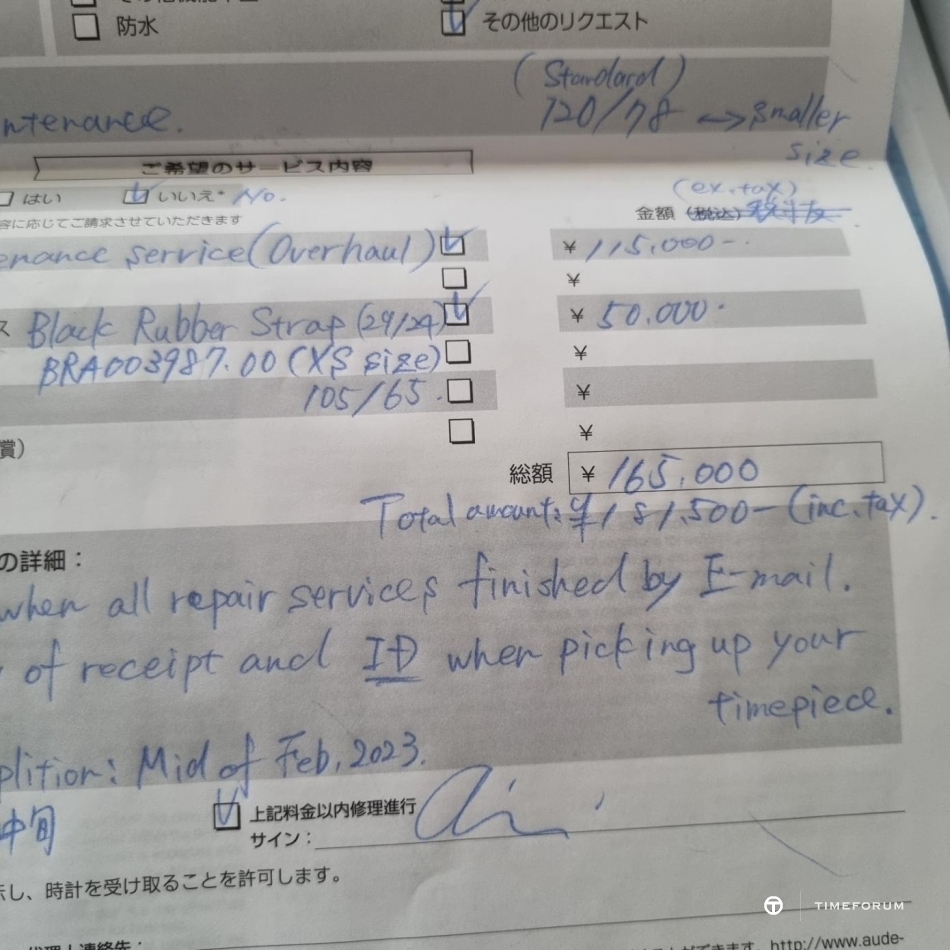 防水
その他のリクエスト
(Standard)
ntenance. 120/78 ↔ smaller
size
ご希望のサービス内容
はい いいえ* No.
(ex.tax)
容に応じてご請求させていただきます 金額 (税込) 税抜
enance service (Overhaul) ¥ 115.000-
¥
ス Black Rubber Strap (29/24) ¥ 50.000.
BRA003987.00 (XS size) ¥
105/65. ¥
¥
賞)
総額 ¥ 165,000
Total amount: ¥181,500- (inc.tax).
の詳細：
when all repair services finished by E-mail.
of receipt and ID when picking up your
timepiece.
plition: Mid of Feb, 2023.
中旬
上記料金以内修理進行
サイン：
示し、時計を受け取ることを許可します。
TIMEFORUM
代理人連絡先：
ができます。http://www.aude-